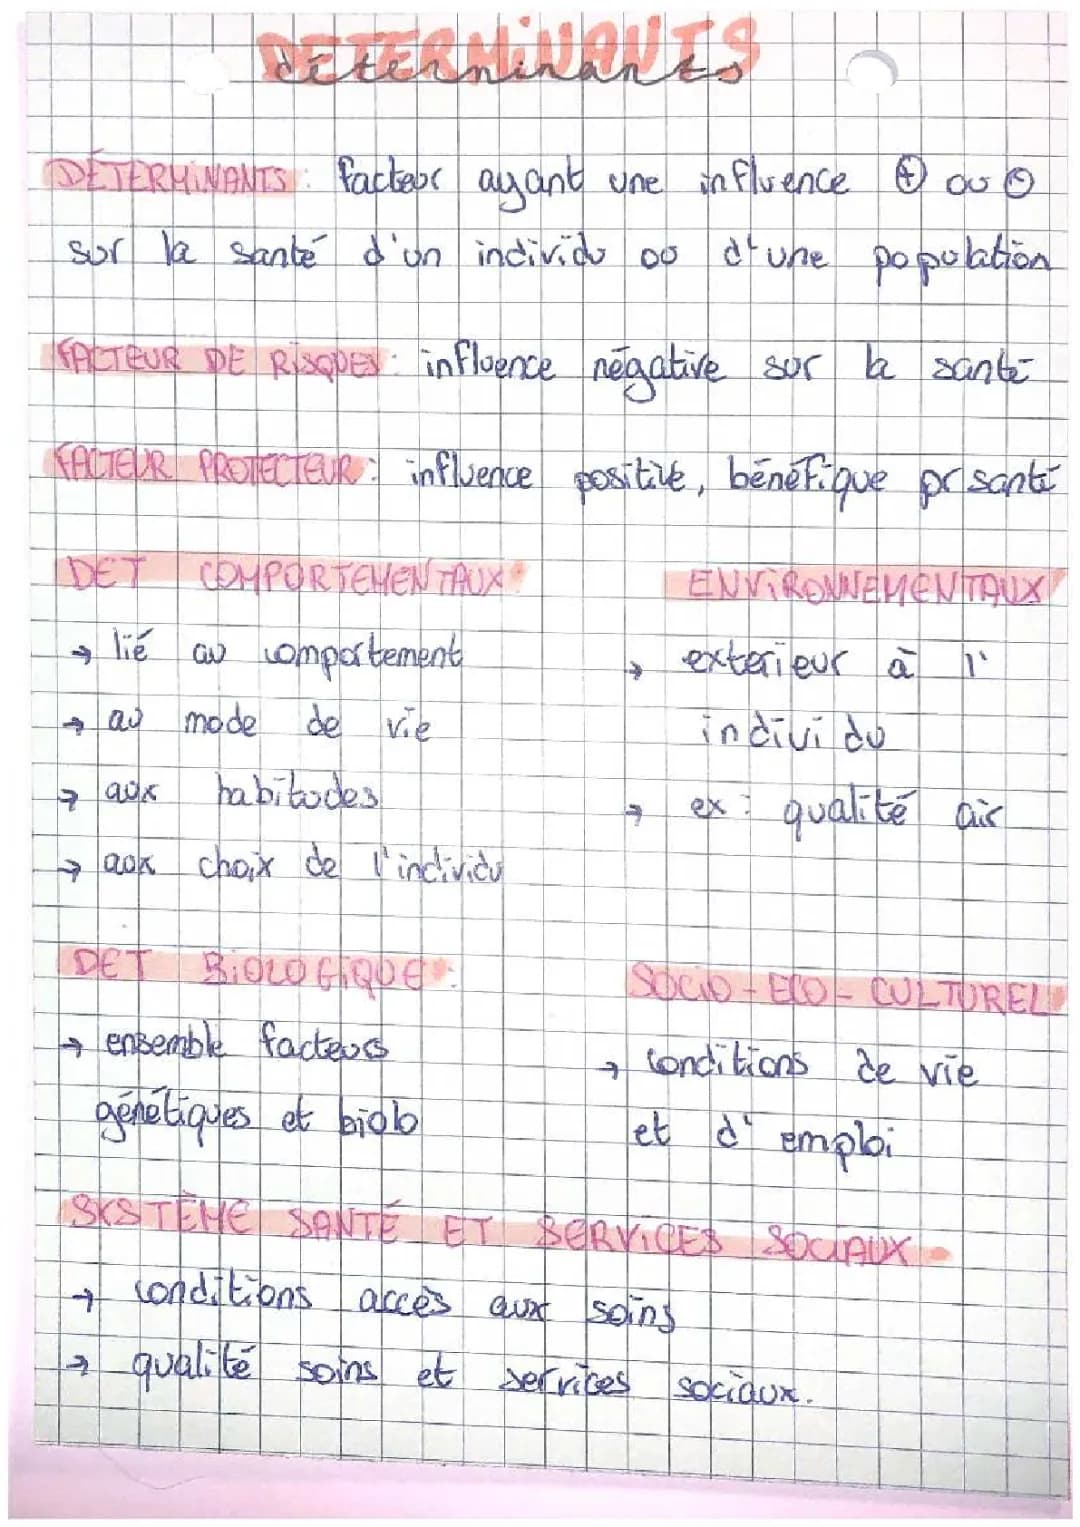 DETERMINANTS
déterminants
DÉTERMINANTS : facteur ayant une influence ⊕ ou ⊖
sur la santé d'un individu ou d'une population
FACTEUR DE RISQUES : influence négative sur la santé
FACTEUR PROTECTEUR : influence positive, bénéfique pr santé
DET COMPORTEMENTAUX :
→ lié au comportement
→ au mode de vie
→ aux habitudes
→ aux choix de l'individu
ENVIRONNEMENTAUX
→ exterieur à l'
individu
→ ex : qualité air
DET BIOLOGIQUE :
→ ensemble facteurs
génétiques et biolo
SOCIO - ECO - CULTUREL
→ conditions de vie
et d'emploi
SYSTÈME SANTÉ ET SERVICES SOCIAUX
→ conditions accès aux soins
→ qualité soins et services sociaux.